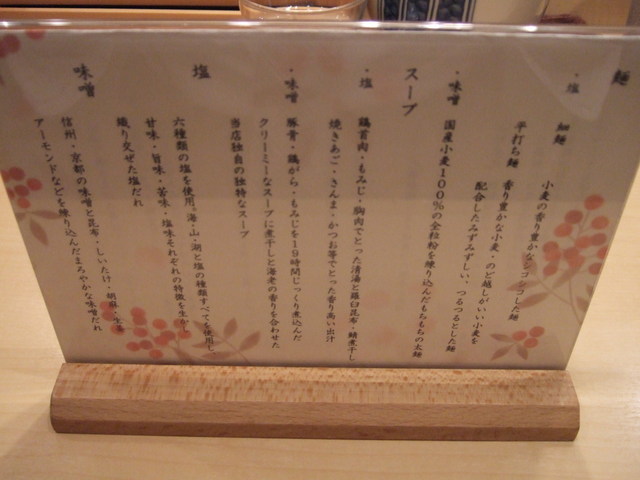 麺
・塩
細麺
小麦の香り豊かなシコシコした麺
平打ち麺
香り豊かな小麦・のど越しがいい小麦を
配合したみずみずしい、つるつるとした麺
・味噌
国産小麦100%の全粒粉を練り込んだもちもちの太麺
スープ
・塩
鶏首肉・もみじ・胸肉でとった清湯と羅臼昆布・鯖煮干し
焼きあご・さんま・かつお等でとった香り高い出汁
・味噌
豚骨・鶏がら・もみじを19時間じっくり煮込んだ
クリーミーなスープに煮干しと海老の香りを合わせた
当店独自の独特なスープ
塩
六種類の塩を使用。海・山・湖と塩の種類すべてを使用し
甘味・旨味・苦味・塩味それぞれの特徴を生かし
織り交ぜた塩だれ
味噌
信州・京都の味噌と昆布・しいたけ・胡麻・生姜
アーモンドなどを練り込んだまろやかな味噌だれ